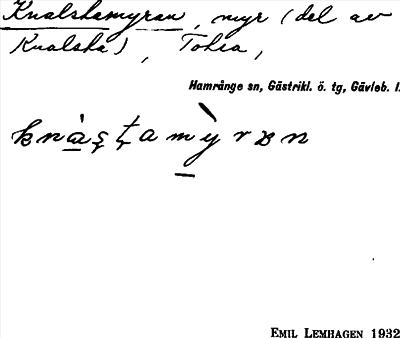 Knalstamyran, myr (del av
Knalsta), Tolea,
Hamrånge sn, Gästrikl. ö. tg, Gävleb. l.
EMIL LEMHAGEN 1932